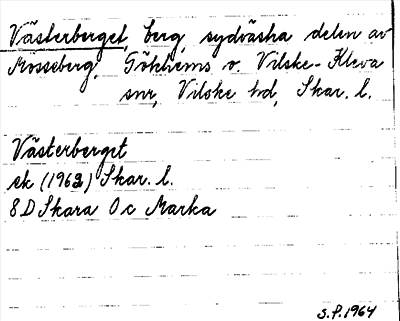 Västerberget, berg, sydvästra delen av
Mösseberg, Gökhems o. Vilske-Kleva
snr, Vilske hd, Skar. l.
Västerberget
ek (1962) Skar. l.
8D Skara Oc Marka
S.P. 1964